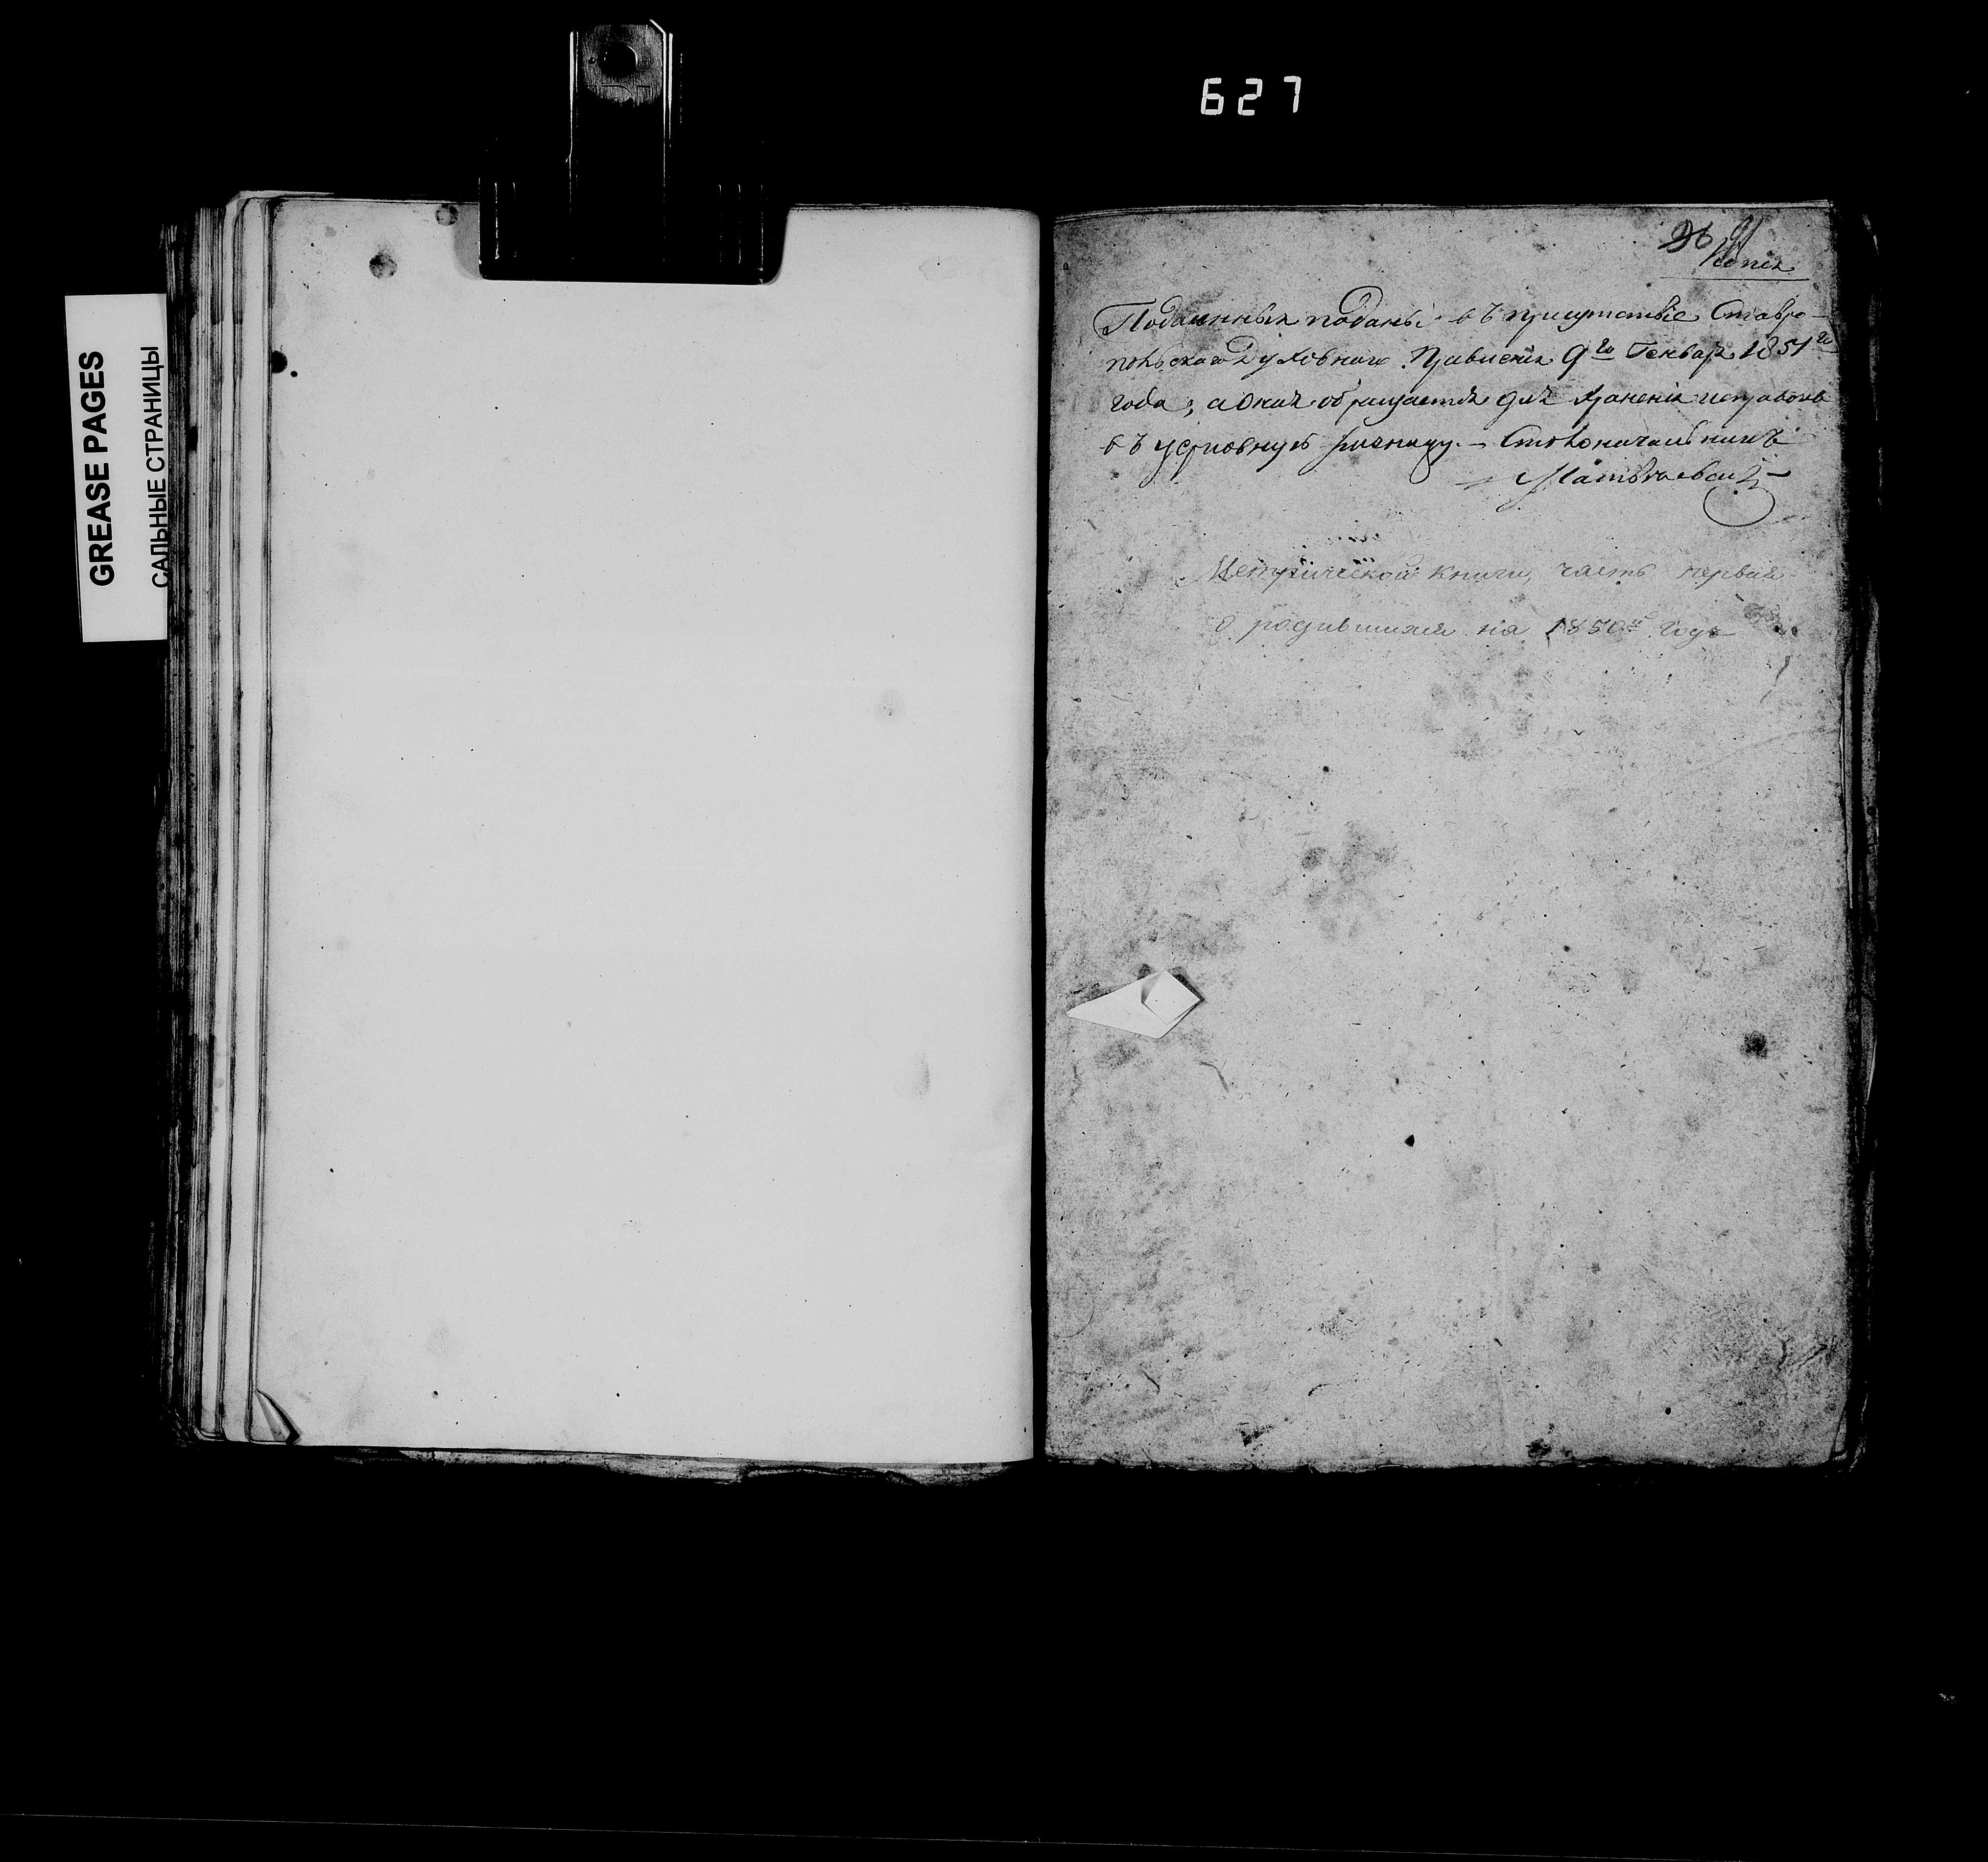 627
GREASE PAGES
САЛЬНЫЕ СТРАНИЦЫ
Копія
Подлинныя поданы въ присутствіе Ставро-
польскаго Духовнаго Правленія 9го Генваря 1851го
года; а окая обращается для храненія
въ церковную ризницу. – Столоначальникъ
Матвѣевскій
Метрической книги, часть первая
о родившихся на 1850й годъ